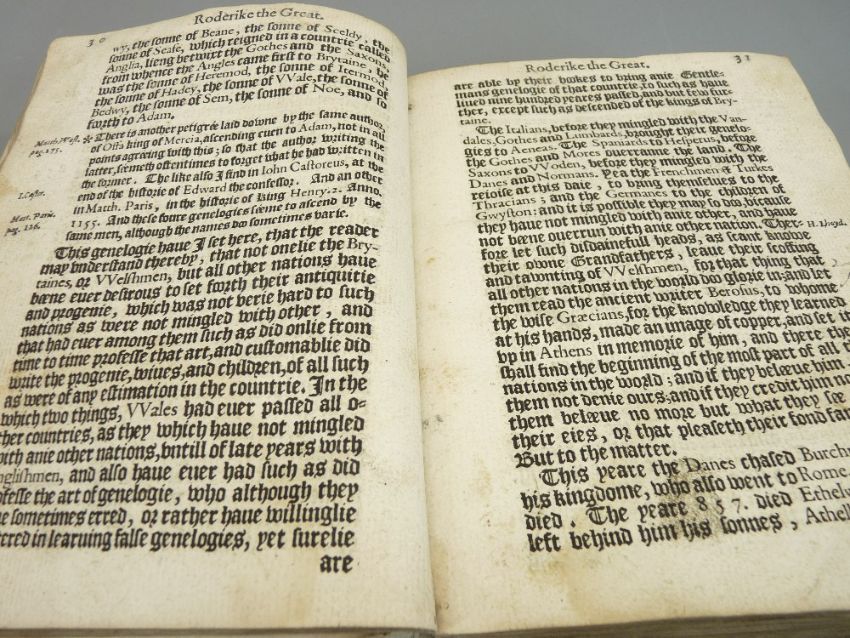 30
Roderike the Great.
wy, the sonne of Beane, the sonne of Sceldy, the
sonne of Seafe, which reigned in a countrie called
Anglia, lieng betwirt the Gothes and the Saxons,
from whence the Angles came first to Brytaine, he
was the sonne of Heremod, the sonne of Itermod,
the sonne of Hadey, the sonne of VVale, the sonne of
Bedwy, the sonne of Sem, the sonne of Noe, and so
forth to Adam.
Matth. West.
pag. 175.
* There is another petigrée laid downe by the same author,
of Offa king of Mercia, ascending euen to Adam, not in all
points agreeing with this; so that the author writing the
latter, séemeth oftentimes to forget what he had written in
the former. The like also I find in Iohn Castoreus, at the
I. Castor.
end of the historie of Edward the confessor. And an other
in Matth. Paris, in the historie of king Henry. 2. Anno.
Mat. Paris.
pag. 126.
1155. And these foure genelogies séeme to ascend by the
same men, although the names doo sometimes varie.
This genelogie haue I set here, that the reader
may vnderstand thereby, that not onelie the Bry-
taines, or VVelshmen, but all other nations haue
béene euer desirous to set forth their antiquitie
and progenie, which was not verie hard to such
nations as were not mingled with other, and
that had euer among them such as did onlie from
time to time professe that art, and customablie did
write the progenie, wiues, and children, of all such
as were of any estimation in the countrie. In the
which two things, VVales had euer passed all o-
ther countries, as they which haue not mingled
with anie other nations, vntill of late yeares with
nglishmen, and also haue euer had such as did
ofesse the art of genelogie, who although they
e sometimes erred, or rather haue willinglie
rred in learuing false genelogies, yet surelie
are
Roderike the Great.
31
are able by their bokes to bring anie Gentle-
mans genelogie of that countrie, to such as haue
liued nine hundred yeares passed, and but few fur-
ther, except such as descended of the kings of Bry-
taine.
The Italians, before they mingled with the Van-
dales, Gothes and Lumbards, brought their genelo-
gies to Aeneas. The Spaniards to Hesperus, before
the Gothes and Mores ouercame the land. The
Saxons to VVoden, before they mingled with the
Danes and Normans. Yea the Frenchmen & Turkes
reioise at this daie, to bring themselues to the
Thracians; and the Germanes to the children of
Gwyston: and it is possible they may so doo, bicause
they haue not mingled with anie other, and haue
not béene ouerrun with anie other nation. Ther-
H. Lhoyd.
fore let such disdainefull heads, as scant knowe
their owne Grandfathers, leaue their scoffing
and tawnting of VVelshmen, for that thing that
all other nations in the world doo glorie in: and let
them read the ancient writer Berosus, to whome
the wise Græcians, for the knowledge they learned
at his hands, made an image of copper, and set it
vp in Athens in memorie of him, and there they
shall find the beginning of the most part of all the
nations in the world; and if they beléeue him
them not denie ours; and if they credit him no
them beléeue no more but what they sée
their eies, or that pleaseth their fond fan
But to the matter.
This yeare the Danes chased Burchr
his kingdome, who also went to Rome
died. The yeare 857. died Ethelu
left behind him his sonnes, Athell